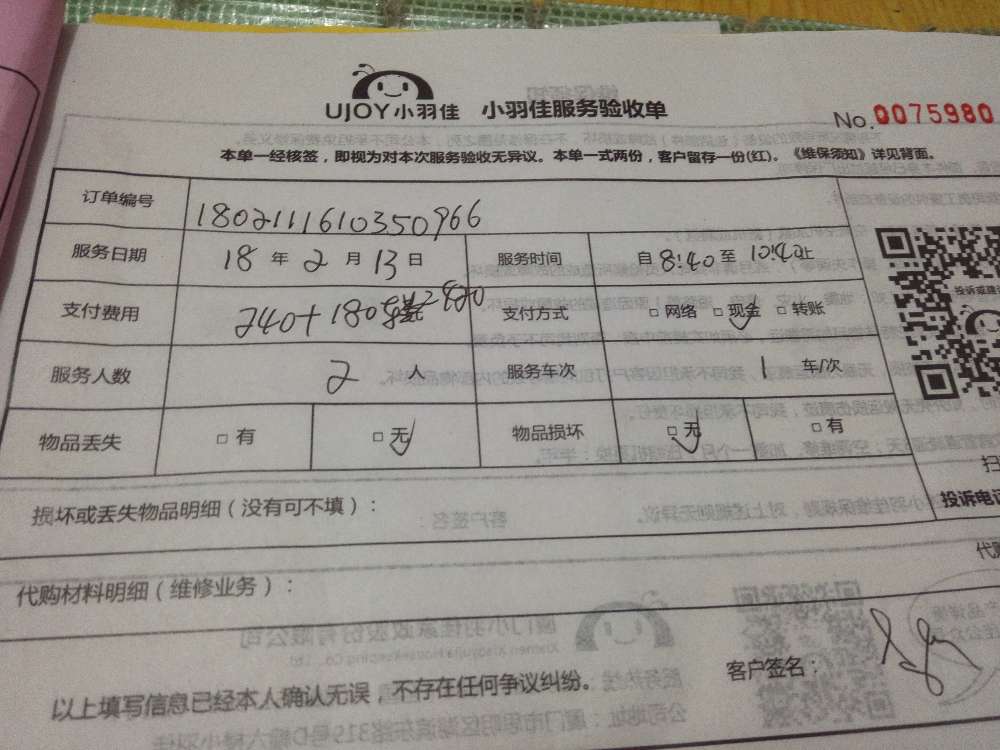 UJOY小羽佳 小羽佳服务验收单
No.0075980
本单一经核签，即视为对本次服务验收无异议。本单一式两份，客户留存一份(红)。《维保须知》详见背面。
订单编号 1802111610350966
服务日期 18 年 2 月 13 日 服务时间 自 8:40 至 10:40止
支付费用 240+180 420 支付方式 □ 网络 □ 现金 □ 转账
投诉或建
服务人数 2 人 服务车次 1 车/次
物品丢失 □ 有 □ 无 物品损坏 □ 无 □ 有
扫
损坏或丢失物品明细（没有可不填）：
投诉电话
代购材料明细（维修业务）：
代购
客户签名：
以上填写信息已经本人确认无误，不存在任何争议纠纷。